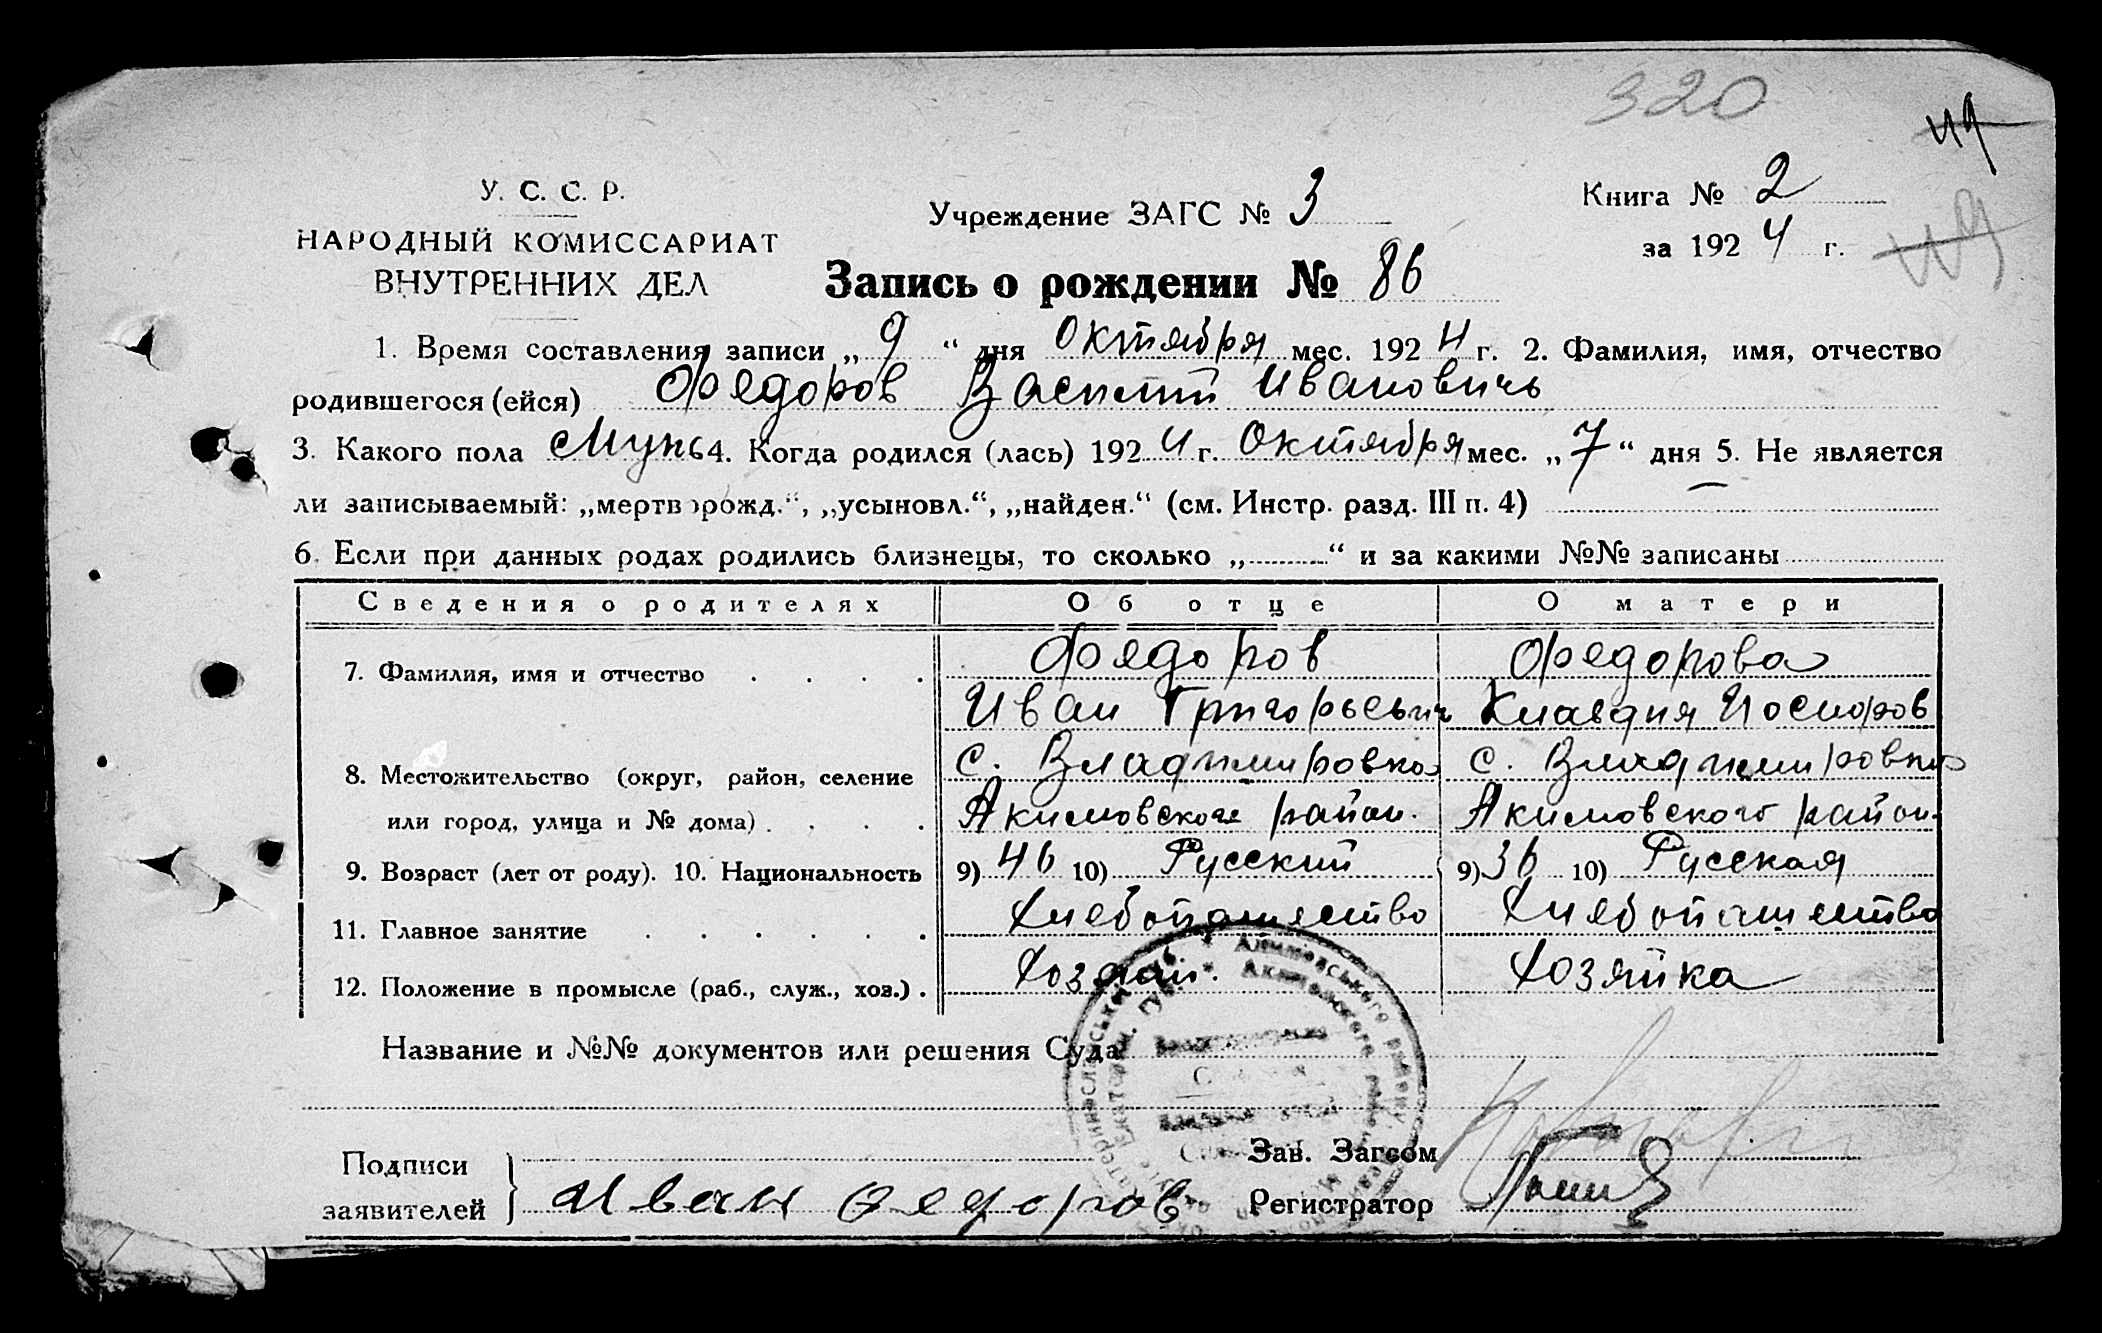 320
49
У. С. С. Р.
НАРОДНЫЙ КОМИССАРИАТ
ВНУТРЕННИХ ДЕЛ
Учреждение ЗАГС № 3
Книга № 2
за 1924 г.
49
Запись о рождении № 86
1. Время составления записи „9“ дня Октября мес. 1924 г. 2. Фамилия, имя, отчество
родившегося (ейся) Федоров Василий Ивановичь
3. Какого пола Мужс 4. Когда родился (лась) 1924 г. Октября мес. „7“ дня 5. Не является
ли записываемый: „мертворожд.“, „усыновл.“, „найден.“ (см. Инстр. разд. III п. 4) —
6. Если при данных родах родились близнецы, то сколько „..........“ и за какими №№ записаны
Сведения о родителях Об отце О матери
7. Фамилия, имя и отчество . . . . Федоров Федорова
Иван Григорьевич Клавдия Носпоров
8. Местожительство (округ, район, селение с. Владимировка с. Владимировка
или город, улица и № дома) . . . . Акимовского район. Акимовского район.
9. Возраст (лет от роду). 10. Национальность 9) 46 10) Русский 9) 36 10) Русская
11. Главное занятие . . . . . . Хлебопашество Хлебопашество
12. Положение в промысле (раб., служ., хоз.) . Хозяин. Хозяйка
Название и №№ документов или решения Суда
Акимовського району
Акимовского
Екатерин. губ.
Подписи
заявителей
Иван Федоров
Зав. Загсом
Регистратор